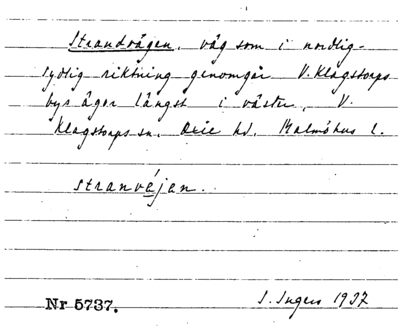 Strandvägen, väg som i nordlig-
sydlig riktning genomgår V. Klagstorps
bys ägor längst i väster, V.
Klagstorps sn. Oxie hd. Malmöhus l.
stranvéjan.
Nr 5737.
I. Ingers 1937